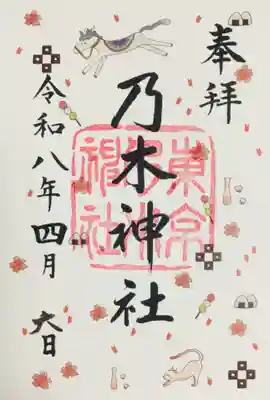 奉拝
乃木神社
東京乃木神社
令和八年四月六日